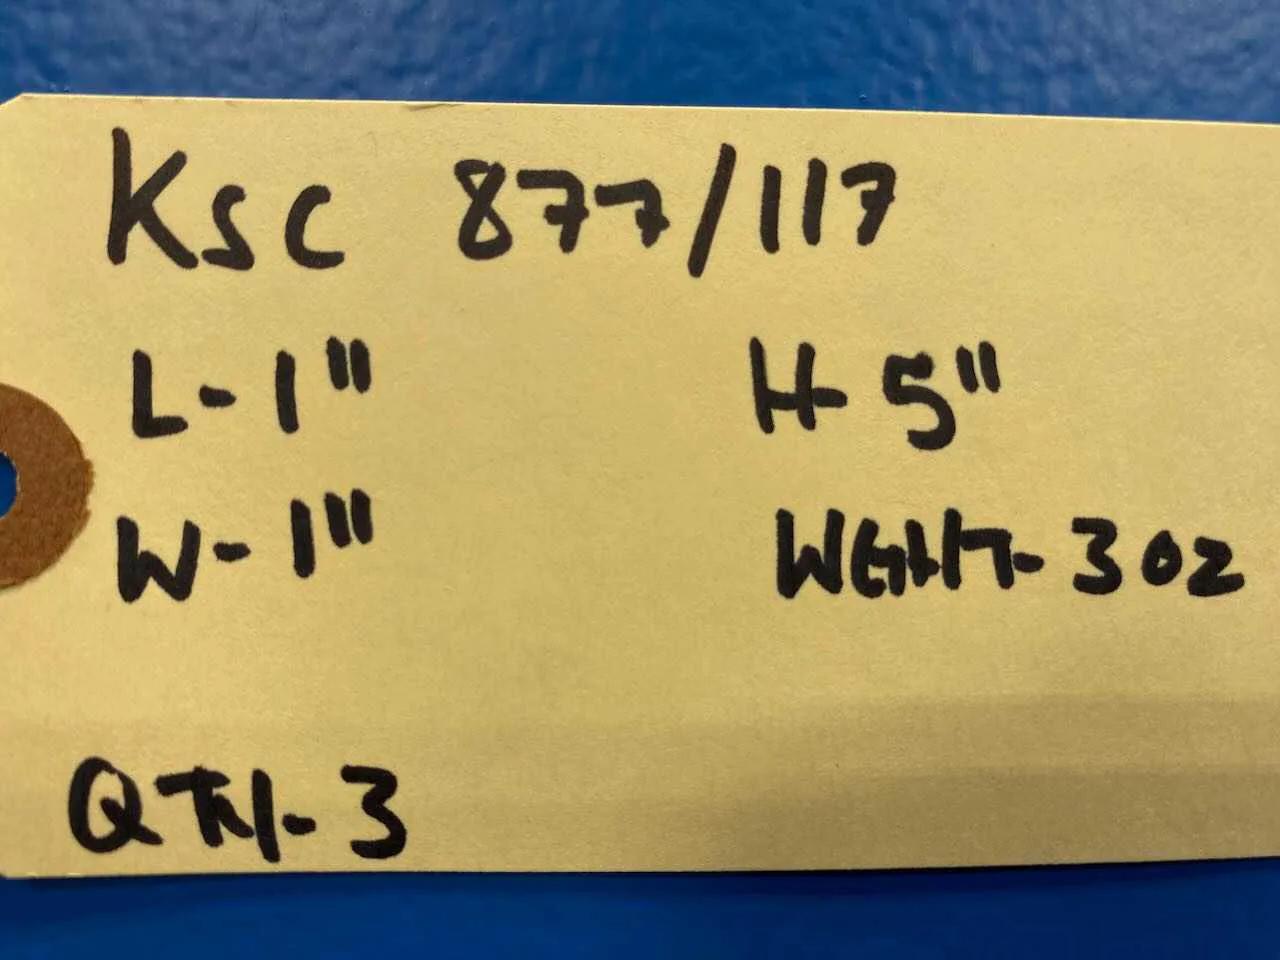 KSC 877/117
L-1" H-5"
W-1" WGHT-3oz
QTY-3